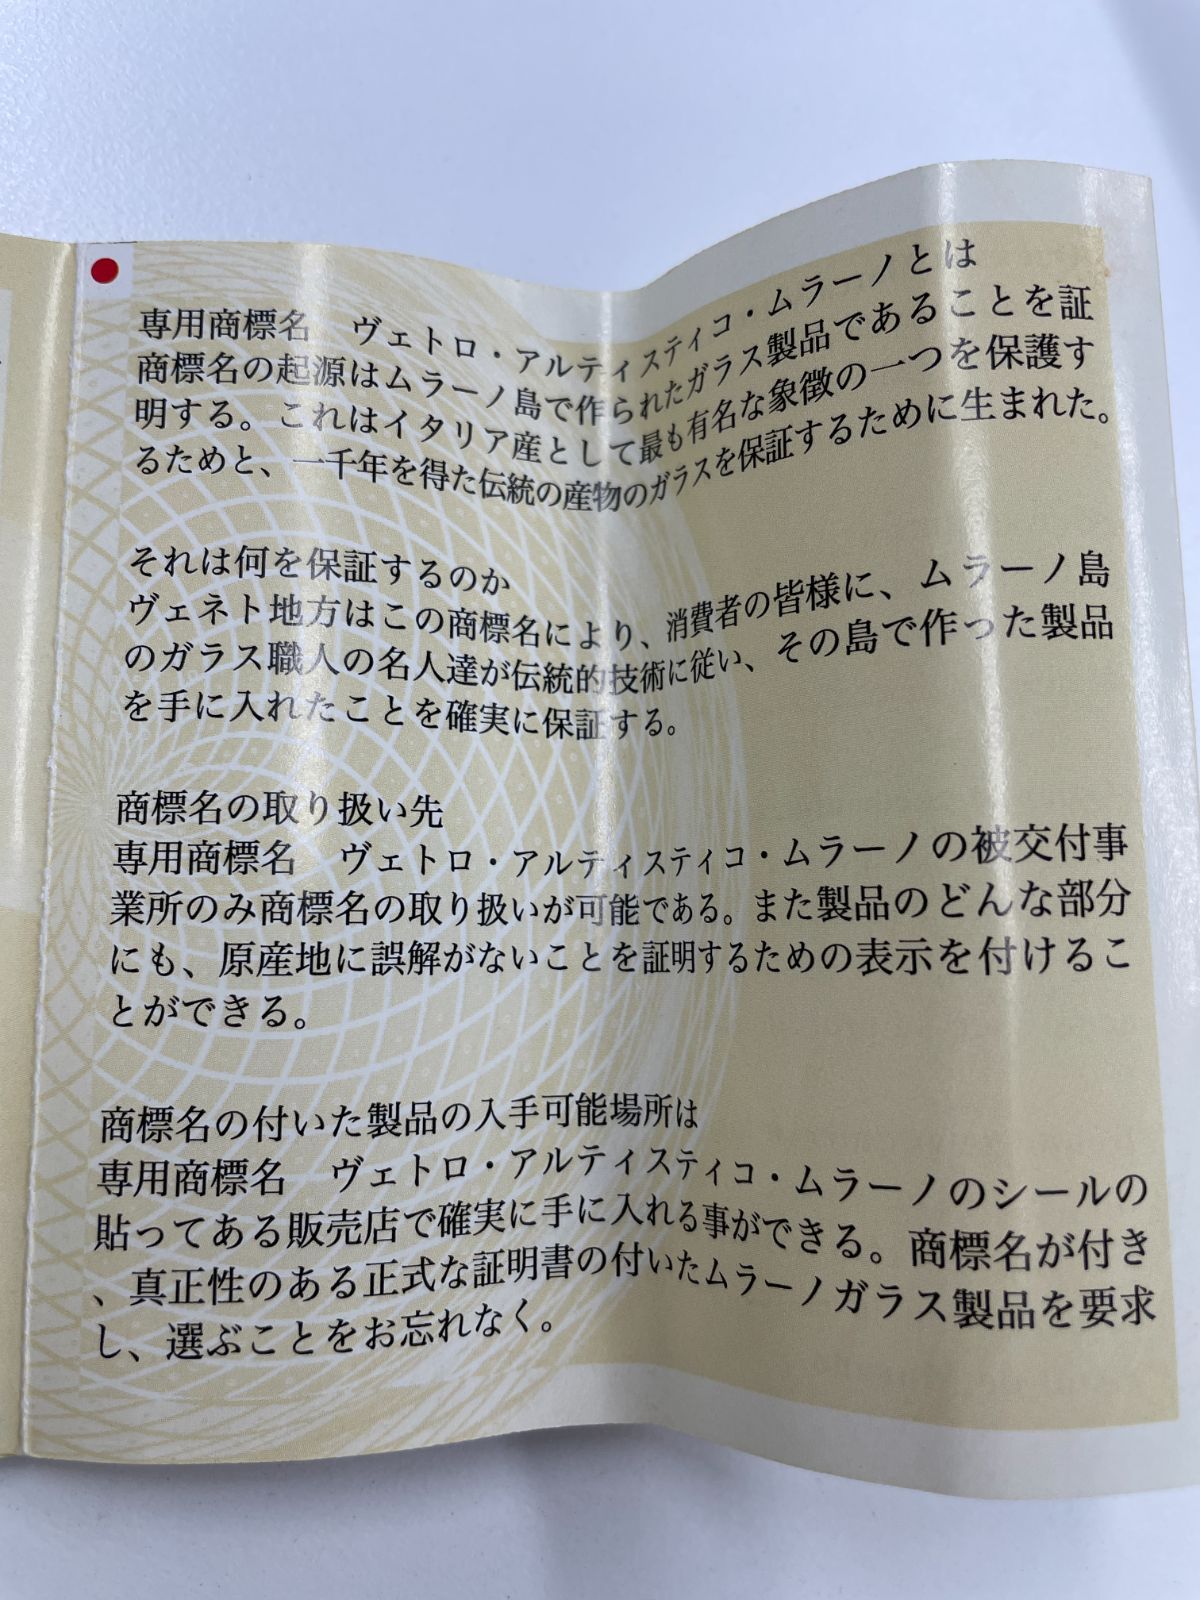 専用商標名　ヴェトロ・アルティスティコ・ムラーノとは
商標名の起源はムラーノ島で作られたガラス製品であることを証
明する。これはイタリア産として最も有名な象徴の一つを保護す
るためと、一千年を得た伝統の産物のガラスを保証するために生まれた。
それは何を保証するのか
ヴェネト地方はこの商標名により、消費者の皆様に、ムラーノ島
のガラス職人の名人達が伝統的技術に従い、その島で作った製品
を手に入れたことを確実に保証する。
商標名の取り扱い先
専用商標名　ヴェトロ・アルティスティコ・ムラーノの被交付事
業所のみ商標名の取り扱いが可能である。また製品のどんな部分
にも、原産地に誤解がないことを証明するための表示を付けるこ
とができる。
商標名の付いた製品の入手可能場所は
専用商標名　ヴェトロ・アルティスティコ・ムラーノのシールの
貼ってある販売店で確実に手に入れる事ができる。商標名が付き
、真正性のある正式な証明書の付いたムラーノガラス製品を要求
し、選ぶことをお忘れなく。